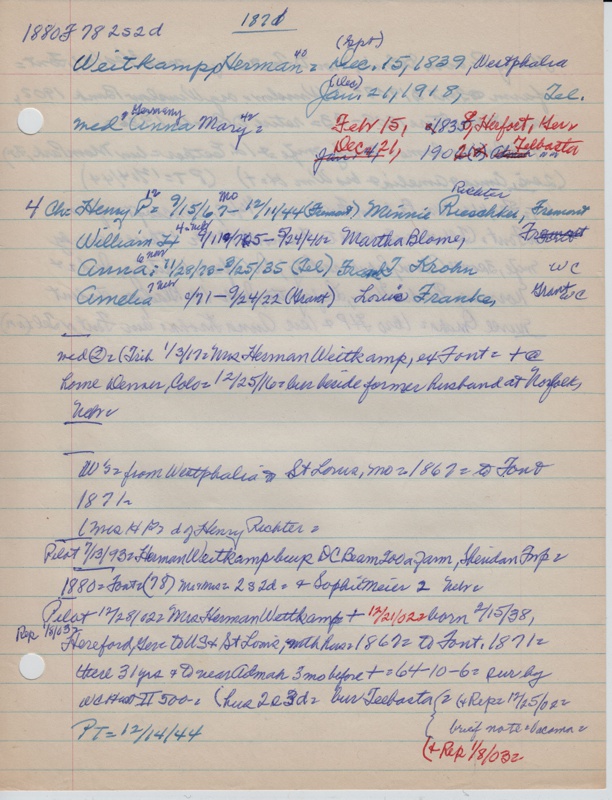 1880F 78 2s2d 1871
(Apr)
Weitkamp, Herman 40 = Dec. 15, 1839, Westphalia
(Dec)
Jan. 21, 1918, Tel.
Germany
med Anna Mary 42 = Feb 15, 1838, Herfort, Ger
Dec 21, 1902 Telbasta
Richter
4 Chi Henry P 12 = 9/15/67 mo - 12/11/44 (Fremont) Minnie Rueschker, Fremont
William H 4 Neb 75 - 9/24/40 = Martha Blome,
Anna 6 Neb = 11/28/78 - 8/25/35 (Tel) Frank J Krohn WC
Amelia 7 Neb /71 - 9/24/22 (Grant) Louis Franke, Grant WC
med ② = (Trib 1/3/17 = Mrs Herman Weitkamp, ex Font = + @
home Denver, Colo = 12/25/16 = bur beside former husband at Norfolk,
Neb =
W's = from Westphalia St Louis, Mo = 1867 = to Font
1871 =
(Mrs H P d of Henry Richter =
Pilot 7/13/93 = Herman Weitkamp buys DC Beam 200 a farm, Sheridan Twp =
1880 = Font = (78) Mr Mrs = 2s2d = + Sophie Meier 2 Neb =
Pilot 12/28/02 = Mrs Herman Weitkamp + 12/21/02 = born 2/15/38,
Rep 1/8/03 = Hereford, Ger to US + St Louis, with hus = 1867 = to Font. 1871 =
there 31 yrs + D near Admah 3 mo before + = 64-10-6 = sur by
WC II 500 = (hus 2s3d = bur Telbasta = (+ Rep = 12/25/02 =
brief note = Vacoma =
PT = 12/14/44 (+ Rep 1/8/03 =